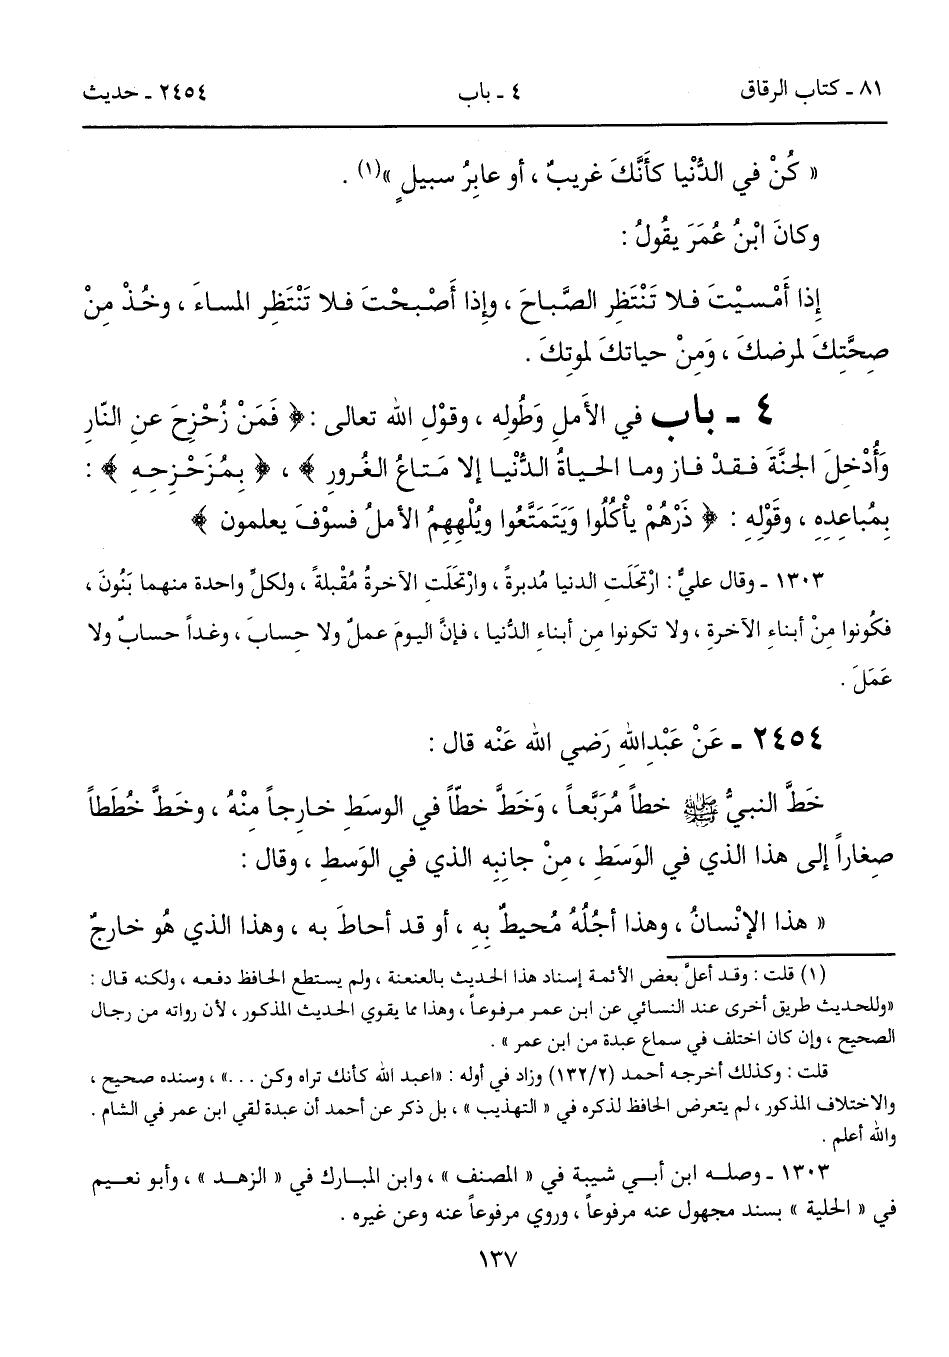 ٨١ ـ كتاب الرقاق ٤ ـ باب ٢٤٥٤ ـ حديث
« كُنْ في الدُّنْيا كأَنَّكَ غريبٌ ، أو عابِرُ سبيلٍ »(١) .
وكانَ ابْنُ عُمَرَ يقُولُ :
إِذا أَمْسيْتَ فلا تَنْتَظِرِ الصَّباحَ ، وإِذا أَصْبحْتَ فلا تَنْتَظِرِ المساءَ ، وخُذْ مِنْ
صِحَّتِكَ لمرضكَ ، وَمِنْ حياتكَ لموتِكَ .
٤ ـ باب في الأَملِ وَطُولِه ، وقوْلِ الله تعالى : ﴿ فَمَنْ زُحْزِحَ عنِ النّارِ
وَأُدْخِلَ الجنَّةَ فقدْ فاز وما الحياةُ الدُّنْيا إلا مَتاعُ الغُرورِ ﴾ ، ﴿ بِمُزَحْزِحِهِ ﴾ :
بِمُباعِدِهِ ، وقَوْلِهِ : ﴿ ذَرْهُمْ يأْكُلُوا وَيَتَمَتَّعُوا ويُلْهِهِمُ الأملُ فسوْفَ يعلمون ﴾
١٣٠٣ ـ وقال عليٌّ : ارْتحَلَتِ الدنيا مُدبرةً ، وارْتحَلَتِ الآخرةُ مُقْبلةً ، ولكلِّ واحدة منهما بَنُونَ ،
فكُونوا مِنْ أبناءِ الآخرةِ ، ولا تكونوا من أبناءِ الدُّنيا ، فإنَّ اليومَ عملٌ ولا حِسابَ ، وغداً حسابٌ ولا
عَمَلَ .
٢٤٥٤ ـ عَنْ عَبْدِاللهِ رَضي الله عَنْه قال :
خَطَّ النبيُّ ﷺ خطاً مُرَبَّعاً ، وَخَطَّ خطّاً في الوسَطِ خارجاً مِنْهُ ، وخَطَّ خُطَطاً
صغاراً إلى هذا الذي في الوَسَطِ ، مِنْ جانِبِه الذي في الوَسطِ ، وقال :
« هذا الإنْسانُ ، وهذا أجُلُهُ مُحيطٌ بِهِ ، أو قد أحاطَ به ، وهذا الذي هُو خارجٌ
(١) قلت : وقد أعلَّ بعض الأئمة إسناد هذا الحديث بالعنعنة ، ولم يستطع الحافظ دفعه ، ولكنه قال :
«وللحديث طريق أخرى عند النسائي عن ابن عمر مرفوعاً ، وهذا مما يقوي الحديث المذكور ، لأن رواته من رجال
الصحيح ، وإن كان اختلف في سماع عبدة من ابن عمر » .
قلت : وكذلك أخرجه أحمد (١٣٢/٢) وزاد في أوله : «اعبد الله كأنك تراه وكن . . .» ، وسنده صحيح ،
والاختلاف المذكور ، لم يتعرض الحافظ لذكره في « التهذيب » ، بل ذكر عن أحمد أن عبدة لقي ابن عمر في الشام .
والله أعلم .
١٣٠٣ ـ وصله ابن أبي شيبة في « المصنف » ، وابن المبارك في « الزهد » ، وأبو نعيم
في « الحلية » بسند مجهول عنه مرفوعاً ، وروي مرفوعاً عنه وعن غيره .
١٣٧